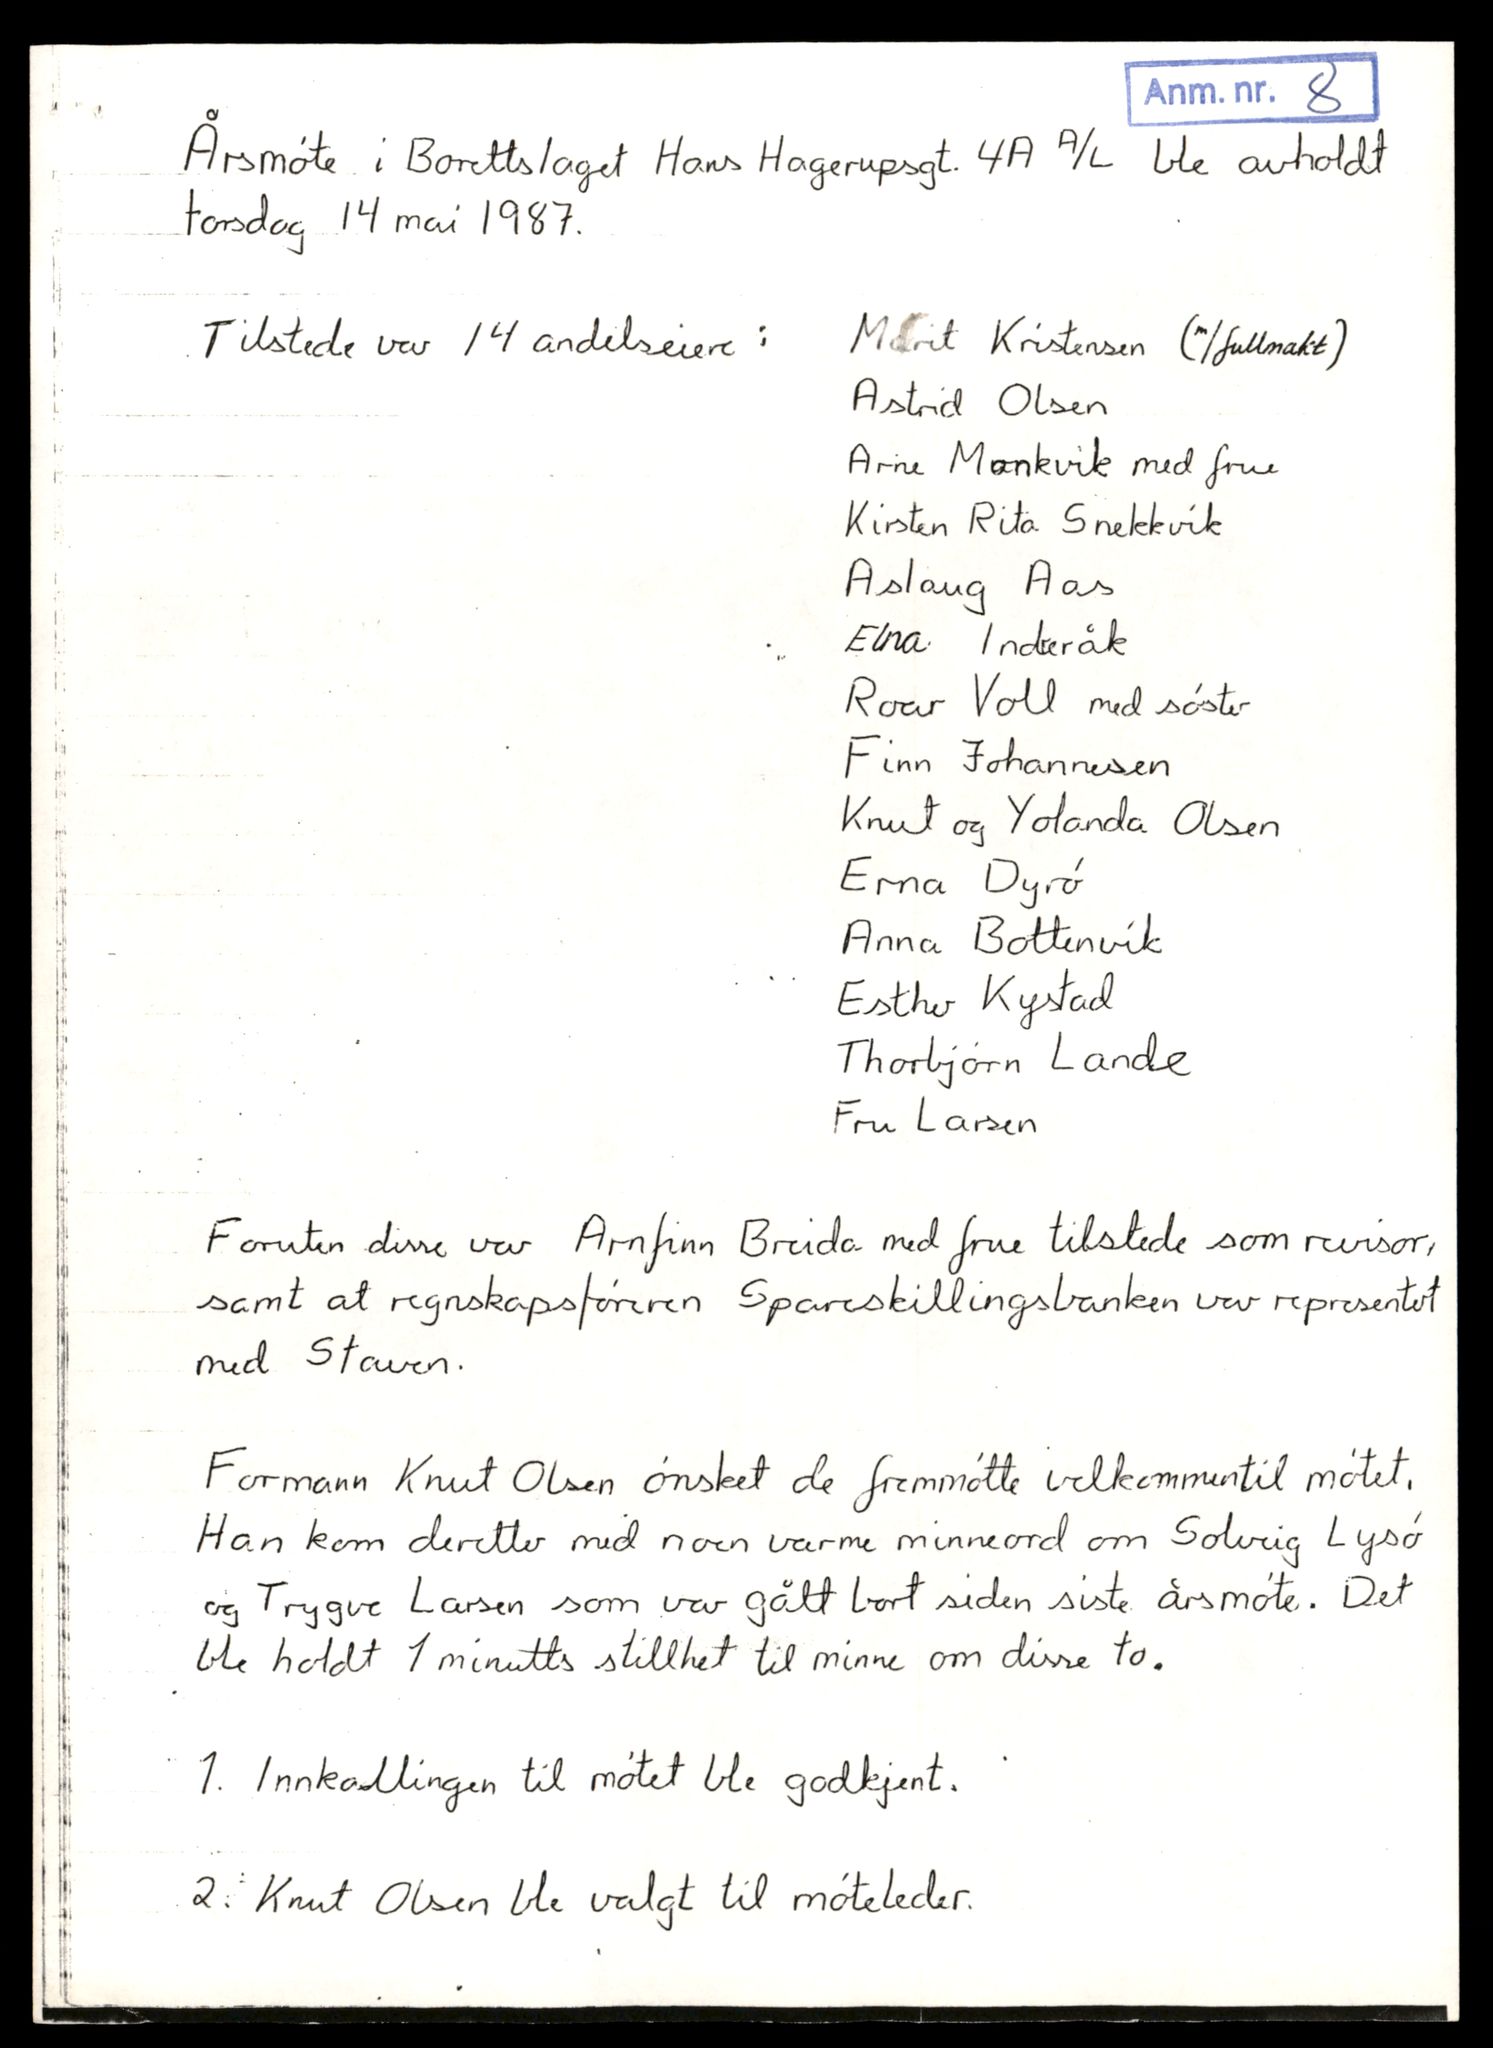 Anm. nr. 8
Årsmóte i Borettslaget Hans Hagerupsgt. 4A A/L ble avholdt
torsdag 14 mai 1987.
Tilstede var 14 andelseiere: Marit Kristensen (m/fullmakt)
Astrid Olsen
Arne Monkvik med frue
Kirsten Rita Snekkvik
Aslaug Aas
Elna Inderåk
Roar Voll med sóster
Finn Johannesen
Knut og Yolanda Olsen
Erna Dyró
Anna Bottenvik
Esther Kystad
Thorbjórn Lande
Fru Larsen
Foruten disse var Arnfinn Breida med frue tilstede som revisor,
samt at regnskapsfóreren Spareskillingsbanken var representet
med Staven.
Formann Knut Olsen ónsket de fremmótte velkommen til mótet.
Han kom deretter med noen varme minneord om Solveig Lysó
og Trygve Larsen som var gått bort siden siste årsmóte. Det
ble holdt 1 minutts stillhet til minne om disse to.
1. Innkallingen til mótet ble godkjent.
2. Knut Olsen ble valgt til móteleder.